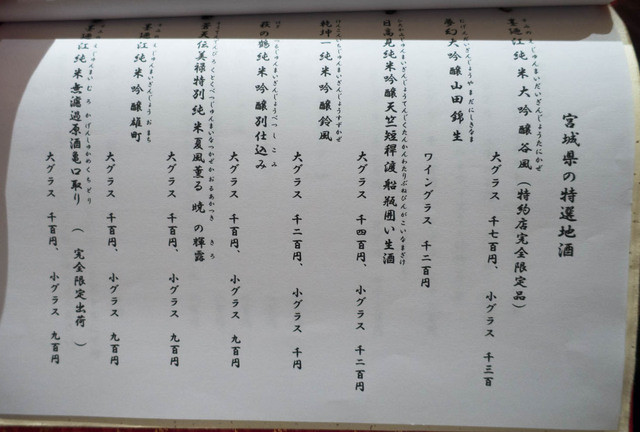 宮城県の特選地酒
墨廼江純米大吟醸谷風（特約店完全限定品）
大グラス 千七百円、 小グラス 千三百
夢幻大吟醸山田錦生
ワイングラス 千二百円
日高見純米吟醸天竺短稈渡船瓶囲い生酒
大グラス 千四百円、 小グラス 千二百円
乾坤一純米吟醸鈴風
大グラス 千二百円、 小グラス 千円
萩の鶴純米吟醸別仕込み
大グラス 千百円、 小グラス 九百円
蒼天伝美禄特別純米夏風薫る 暁 の輝露
大グラス 千百円、 小グラス 九百円
墨廼江純米吟醸雄町
大グラス 千百円、 小グラス 九百円
墨廼江純米無濾過原酒亀口取り （ 完全限定出荷 ）
大グラス 千百円、 小グラス 九百円